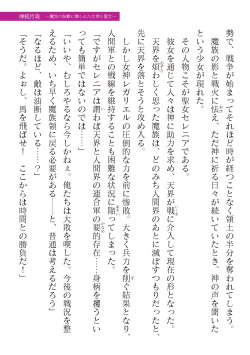 神核汚染 ～魔悦の凶劇に操られた女神と聖女～
勢で、戦争が始まってそれほど時が経つことなく領土の半分を奪われてしまう。
魔族の影と戦火に怯え、ただ神に祈る日々が続いていたとき、神の声を聞いた
という少女が現れた。
その人物こそが聖女セレニアである。
彼女を通じて人は神に助力を求め、天界が戦に介入して現在の形となった。
天界を煩わしく思った魔族は、どのみち人間界のあとに滅ぼすつもりだったと、
先に天界を落そうと攻め入る。
しかし女神レヴリエルの圧倒的な力を前に惨敗。大きく兵力を削ぐ結果となり、
人間軍との戦線を維持することも困難な状況に陥ってしまった。
「ですがセレニアは謂わば天界と人間界の連合軍の要的存在……身柄を攫うとい
っても簡単ではないのでは……」
「いいや、むしろやるなら今しかねぇ。俺たちは大敗を喫した。今後の戦況を整
えるため、いちいち魔族領に戻る必要がある――と、普通は考えるだろう」
「なるほど、敵は油断している……？」
「そうだ。よおし、馬を飛ばせ！　ここからは時間との勝負だ！」